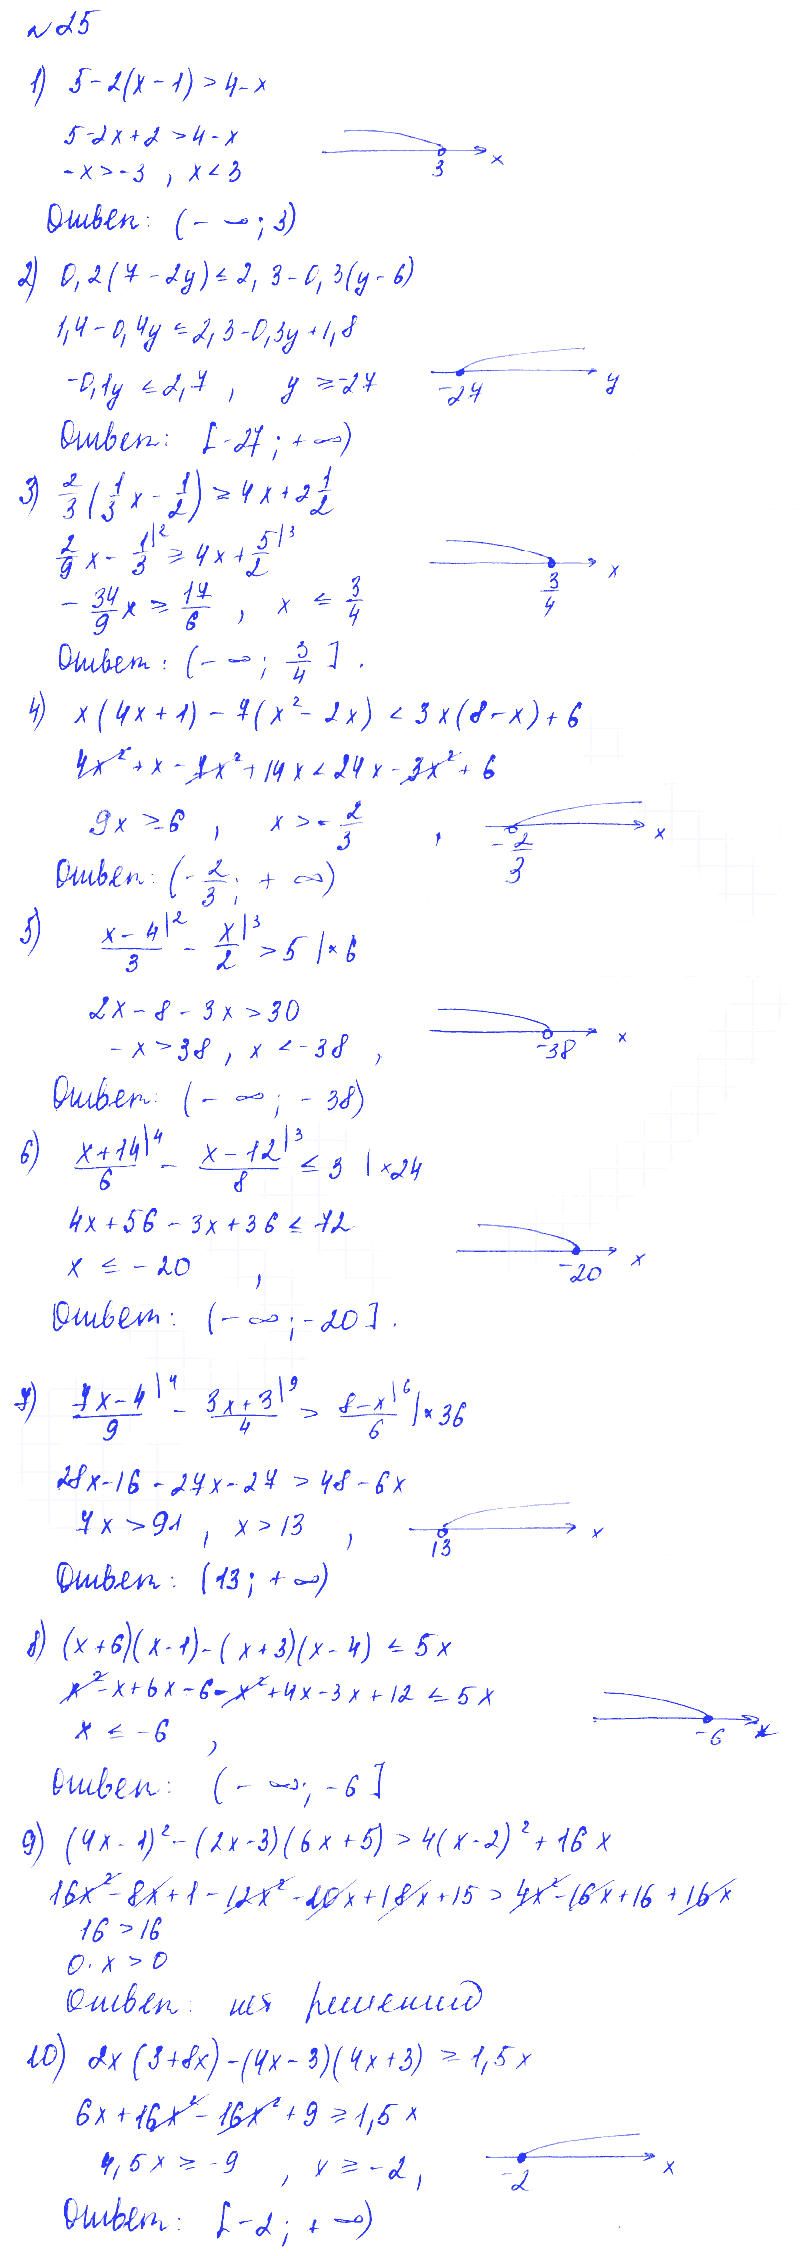 №25
1) 5-2(x-1)>4-x
5-2x+2>4-x
-x>-3, x<3
3 x
Ответ: (-∞; 3)
2) 0,2(7-2y)≤2,3-0,3(y-6)
1,4-0,4y≤2,3-0,3y+1,8
-0,1y≤2,7, y≥-27
-27 y
Ответ: [-27; +∞)
3) 2/3(1/3x-1/2)≥4x+2 1/2
2/9x-1/3|2≥4x+5/2|3
-34/9x≥17/6, x≤3/4
3/4 x
Ответ: (-∞; 3/4].
4) x(4x+1)-7(x²-2x)<3x(8-x)+6
4x²+x-7x²+14x<24x-3x²+6
9x≥6, x>-2/3,
-2/3 x
Ответ: (-2/3; +∞)
5) x-4/3|2-x/2|3>5|×6
2x-8-3x>30
-x>38, x<-38,
-38 x
Ответ: (-∞; -38)
6) x+14/6|4-x-12/8|3≤3|×24
4x+56-3x+36≤72
x≤-20,
-20 x
Ответ: (-∞; -20].
7) 7x-4/9|4-3x+3/4|9>8-x/6|6|×36
28x-16-27x-27>48-6x
7x>91, x>13,
13 x
Ответ: (13; +∞)
8) (x+6)(x-1)-(x+3)(x-4)≤5x
x²-x+6x-6-x²+4x-3x+12≤5x
x≤-6,
-6 x
Ответ: (-∞; -6]
9) (4x-1)²-(2x-3)(6x+5)>4(x-2)²+16x
16x²-8x+1-12x²-20x+18x+15>4x²-16x+16+16x
16>16
0·x>0
Ответ: нет решений
10) 2x(3+8x)-(4x-3)(4x+3)≥1,5x
6x+16x²-16x²+9≥1,5x
4,5x≥-9, x≥-2,
-2 x
Ответ: [-2; +∞)